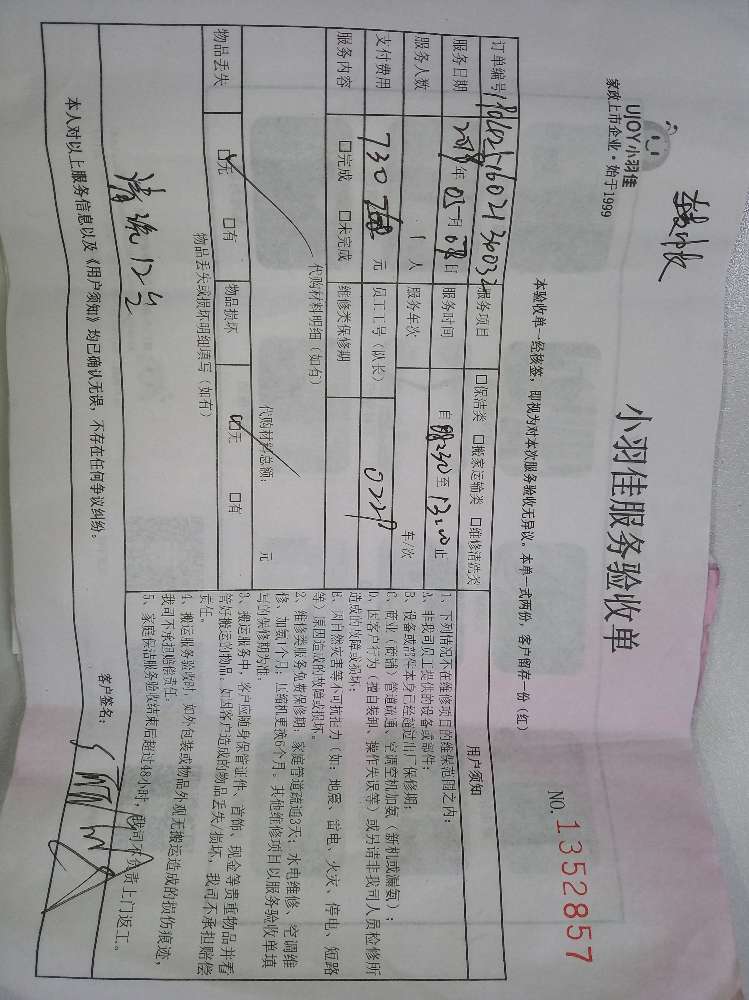 UJOY小羽佳
家政上市企业·始于1999
小羽佳服务验收单
NO.1352857
本验收单一经核签，即视为对本次服务验收无异议。本单一式两份，客户留存一份（红）
订单编号
服务项目 □保洁类 □搬家运输类 □维修清洗类
服务日期 2019年05月08日
服务时间 自08:30至13:00止
服务人数 1人
服务车次 车/次
支付费用 730 元
员工工号（队长） 0229
服务内容 □完成 □未完成
维修类保修期
代购材料明细（如有）
代购材料总额： 元
物品丢失 ☑无 □有
物品损坏 ☑无 □有
物品丢失或损坏明细填写（如有）
清洗12台
本人对以上服务信息以及《用户须知》均已确认无误，不存在任何争议纠纷。
客户签名：
用户须知
1、下列情况不在维修项目的维保范围之内：
A、非我司员工提供的设备或部件；
B、设备或部件本身已经超过出厂保修期；
C、商业（商铺）管道疏通、空调空机加氨（新机或漏氨）；
D、因客户行为（擅自装卸、操作失误等）或另请非我司人员检修所
造成的故障或损坏；
E、因自然灾害等不可抗拒力（如：地震、雷电、火灾、停电、短路
等）原因造成的故障或损坏。
2、维修类服务免费保修期：家庭管道疏通3天；水电维修、空调维
修、加氨1个月；压缩机更换6个月。其他维修项目以服务验收单填
写的保修期为准。
3、搬运服务中，客户应随身保管证件、首饰、现金等贵重物品并看
管好搬运的物品。如因客户造成的物品丢失/损坏，我司不承担赔偿
责任。
4、搬运服务验收时，如外包装或物品外观无搬运造成的损伤痕迹，
我司不承担赔偿责任。
5、家庭保洁服务验收结束后超过48小时，我司不负责上门返工。